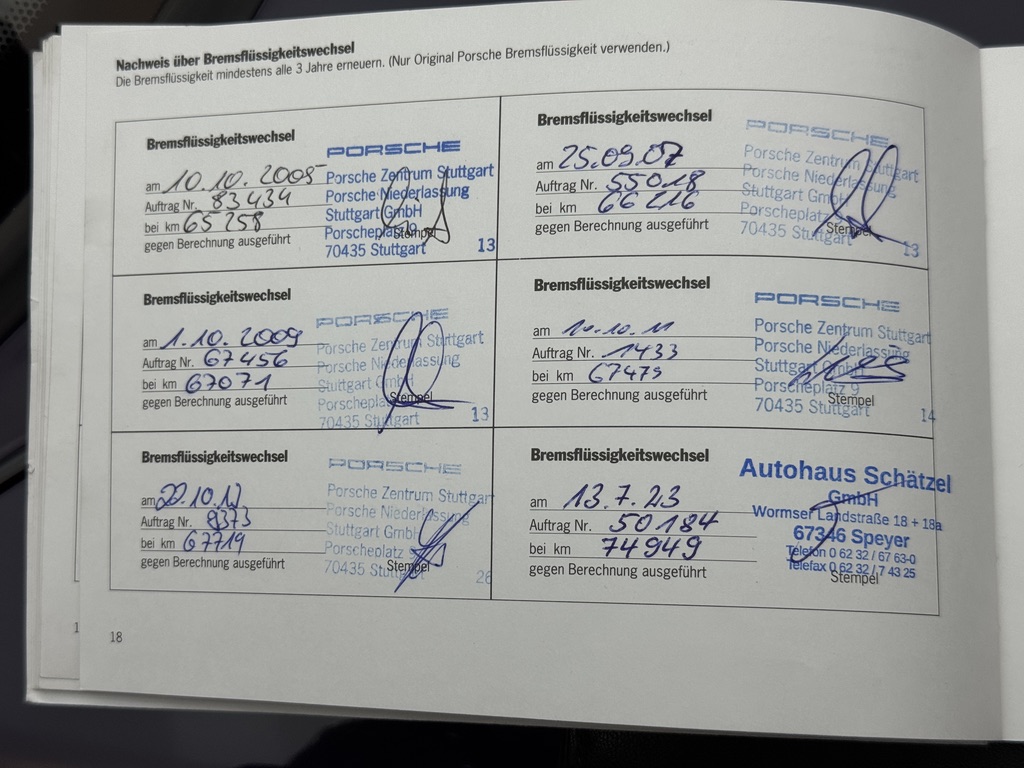 Nachweis über Bremsflüssigkeitswechsel
Die Bremsflüssigkeit mindestens alle 3 Jahre erneuern. (Nur Original Porsche Bremsflüssigkeit verwenden.)
Bremsflüssigkeitswechsel
am 10.10.2005
Auftrag Nr. 83434
bei km 65258
gegen Berechnung ausgeführt
PORSCHE
Porsche Zentrum Stuttgart
Porsche Niederlassung
Stuttgart GmbH
Porscheplatz 9
Stempel
70435 Stuttgart
13
Bremsflüssigkeitswechsel
am 25.09.07
Auftrag Nr. 55018
bei km 66216
gegen Berechnung ausgeführt
PORSCHE
Porsche Zentrum Stuttgart
Porsche Niederlassung
Stuttgart GmbH
Porscheplatz
Stempel
70435 Stuttgart
13
Bremsflüssigkeitswechsel
am 1.10.2009
Auftrag Nr. 67456
bei km 67071
gegen Berechnung ausgeführt
PORSCHE
Porsche Zentrum Stuttgart
Porsche Niederlassung
Stuttgart GmbH
Porscheplatz
Stempel
70435 Stuttgart
13
Bremsflüssigkeitswechsel
am 10.10.11
Auftrag Nr. 1433
bei km 67479
gegen Berechnung ausgeführt
PORSCHE
Porsche Zentrum Stuttgart
Porsche Niederlassung
Stuttgart GmbH
Porscheplatz 9
Stempel
70435 Stuttgart
14
Bremsflüssigkeitswechsel
am
Auftrag Nr. 8373
bei km 67719
gegen Berechnung ausgeführt
PORSCHE
Porsche Zentrum Stuttgart
Porsche Niederlassung
Stuttgart GmbH
Porscheplatz
Stempel
70435 Stuttgart
26
Bremsflüssigkeitswechsel
am 13.7.23
Auftrag Nr. 50184
bei km 74949
gegen Berechnung ausgeführt
Autohaus Schätzel
GmbH
Wormser Landstraße 18 + 18a
67346 Speyer
Telefon 0 62 32 / 67 63-0
Telefax 0 62 32 / 7 43 25
Stempel
18